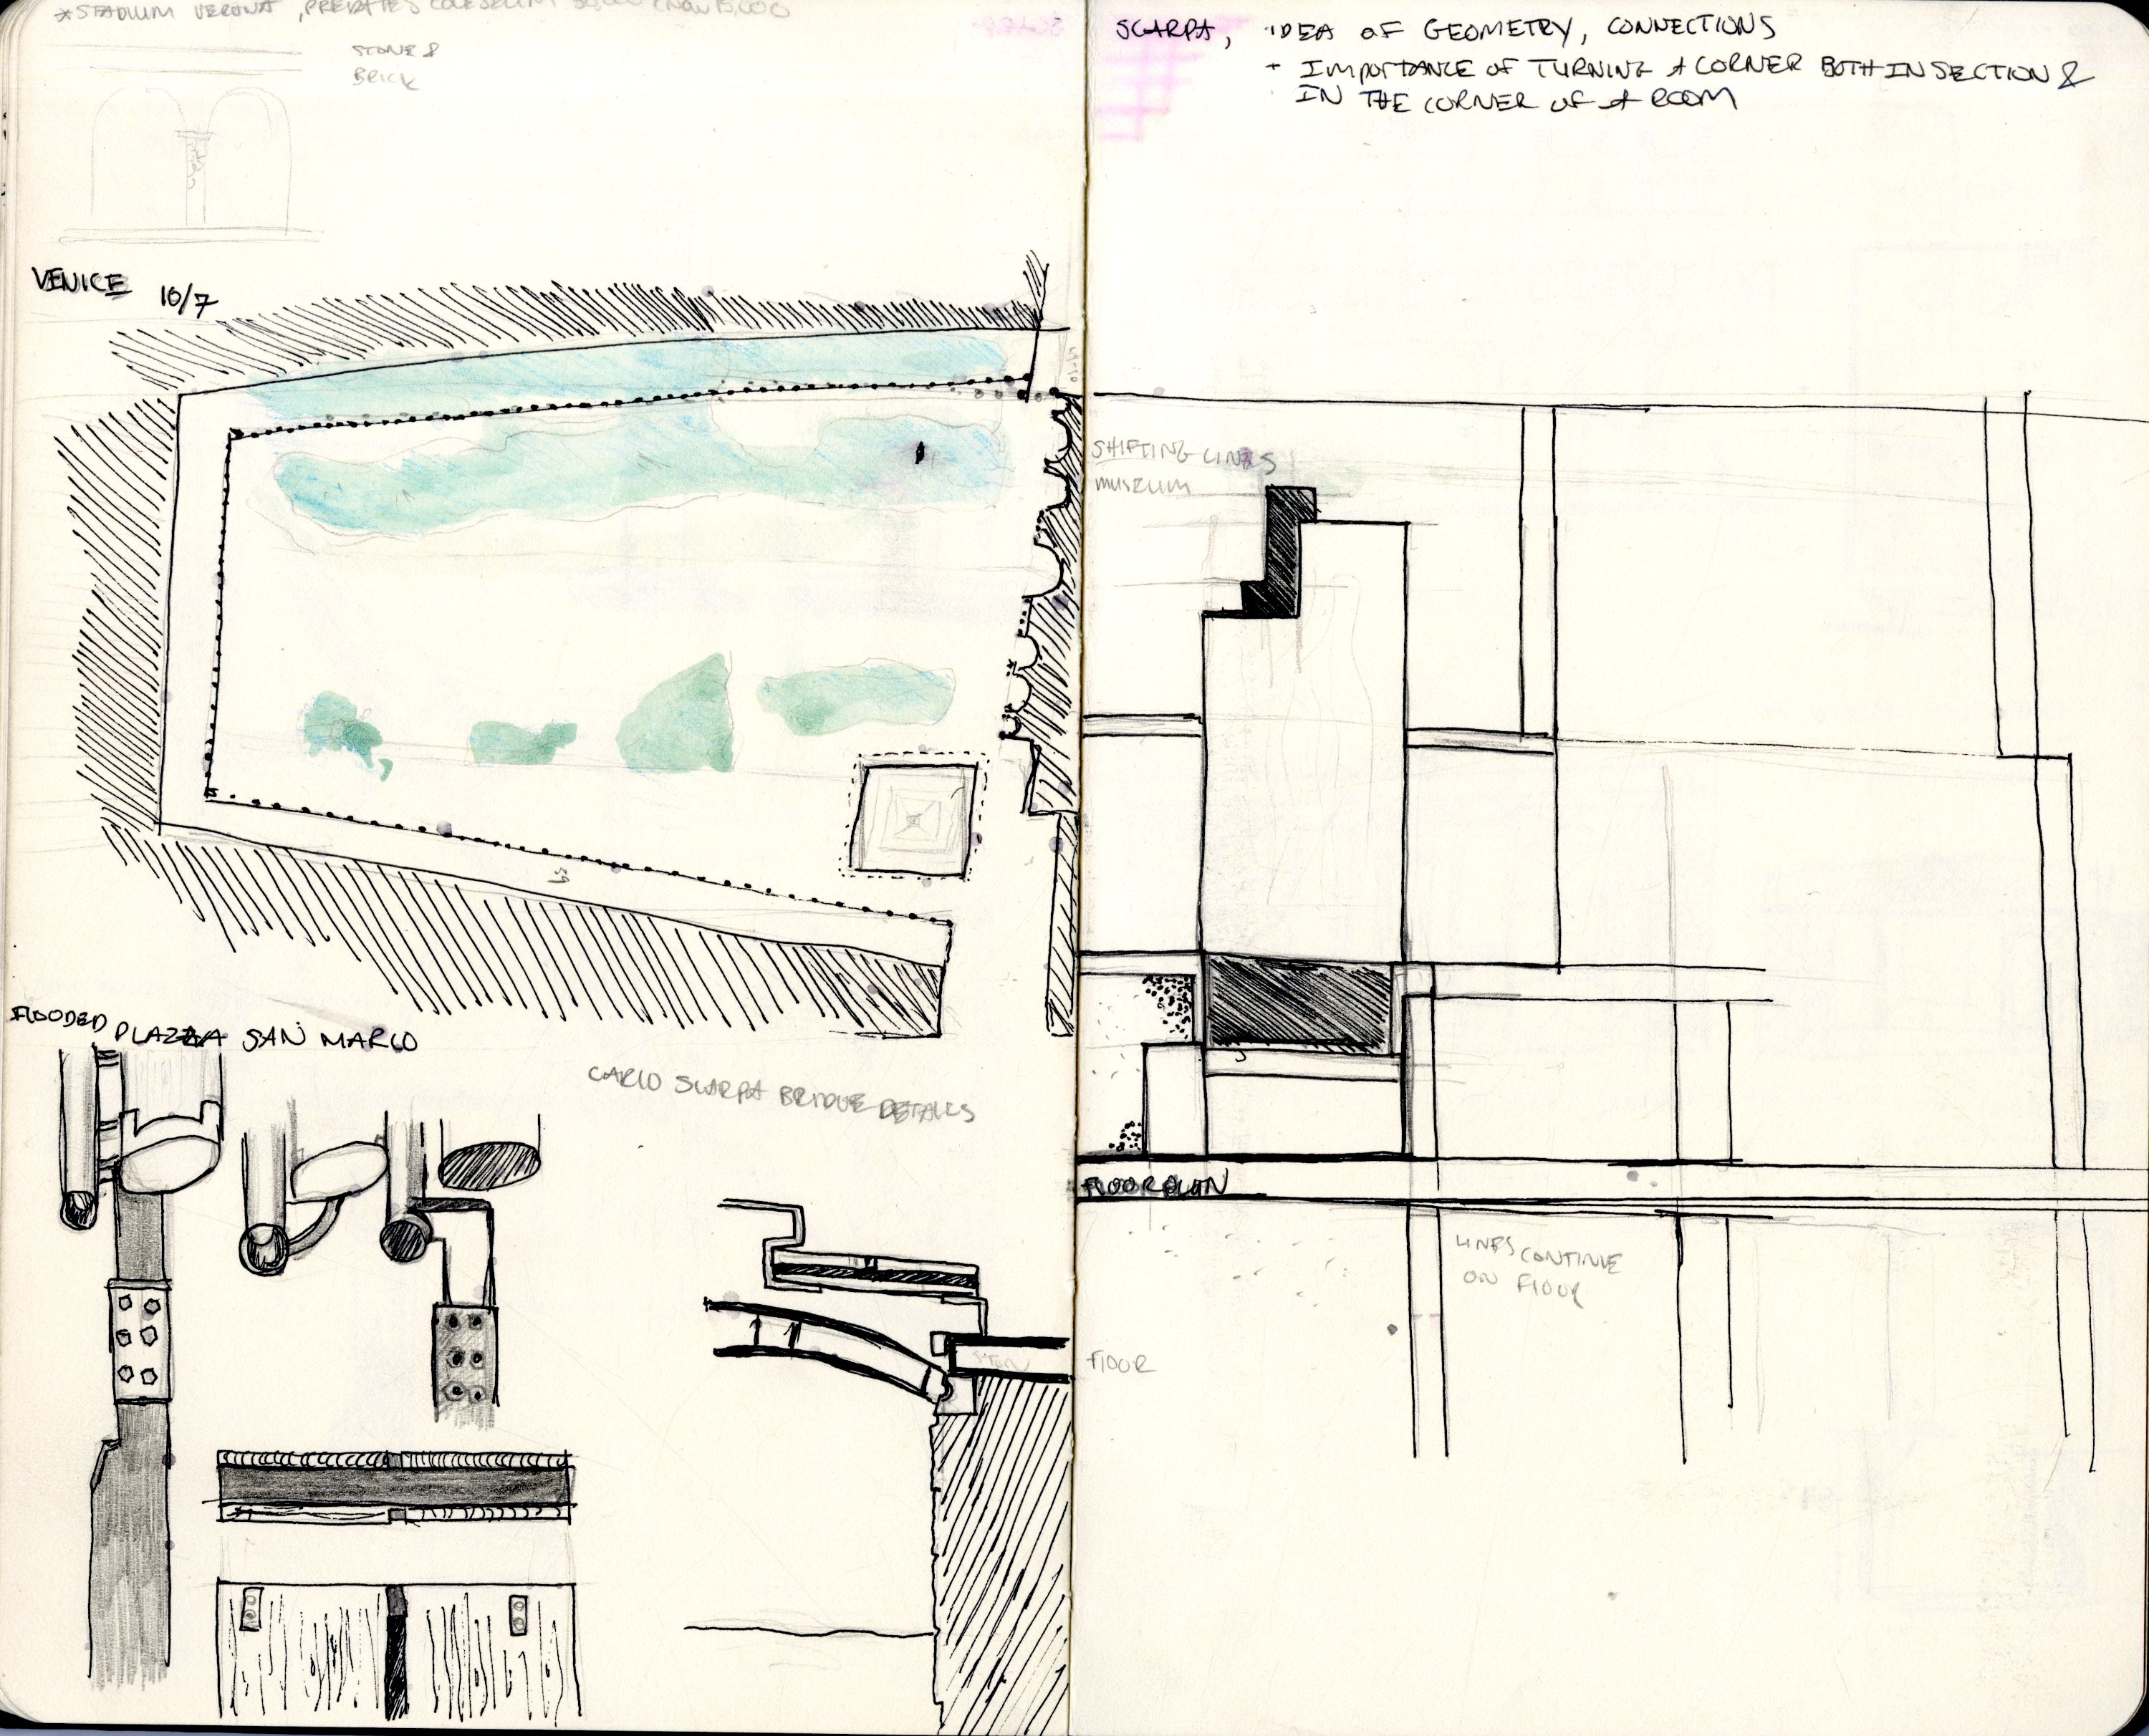 *STADIUM VERONA, PREDATES COLOSEUM
STONE &
BRICK
VENICE 10/7
FLOODED PLAZA SAN MARCO
CARLO SCARPA BRIDGE DETAILS
SCARPA, IDEA OF GEOMETRY, CONNECTIONS
+ IMPORTANCE OF TURNING A CORNER BOTH IN SECTION &
IN THE CORNER OF A ROOM
SHIFTING LINES
MUSEUM
FLOOR PLAN
LINES CONTINUE
ON FLOOR
FLOOR